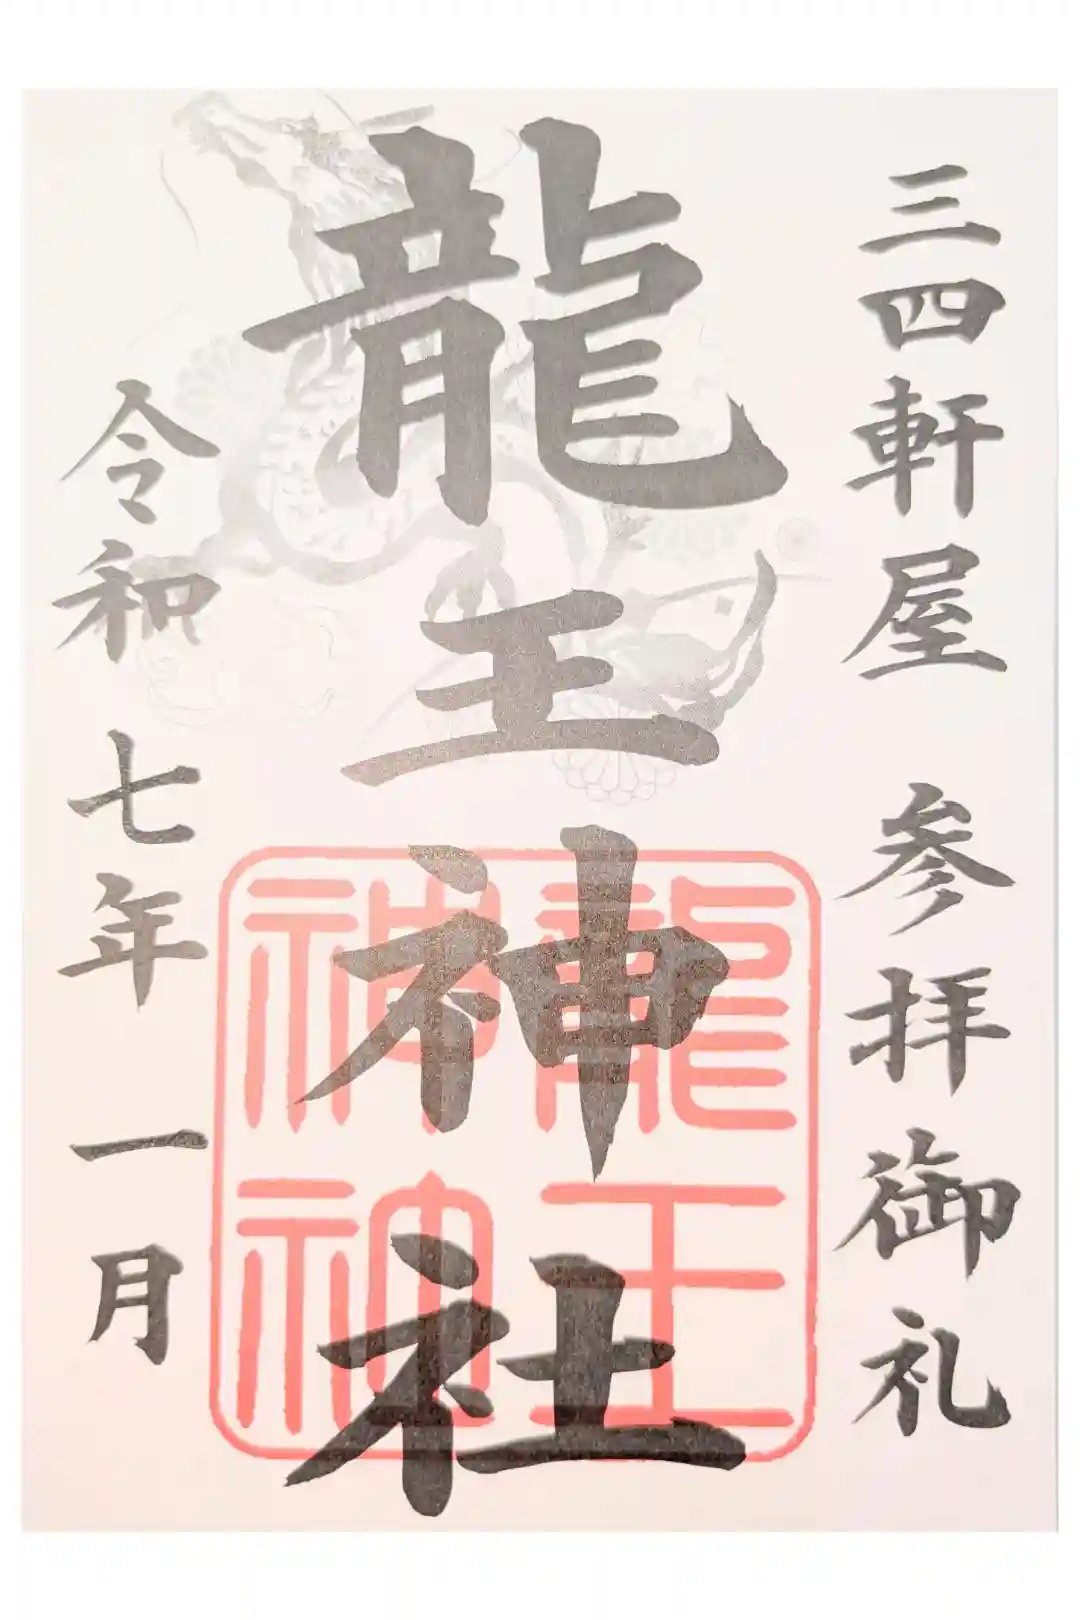 三四軒屋 参拝御礼
龍王神社
令和七年一月
龍王